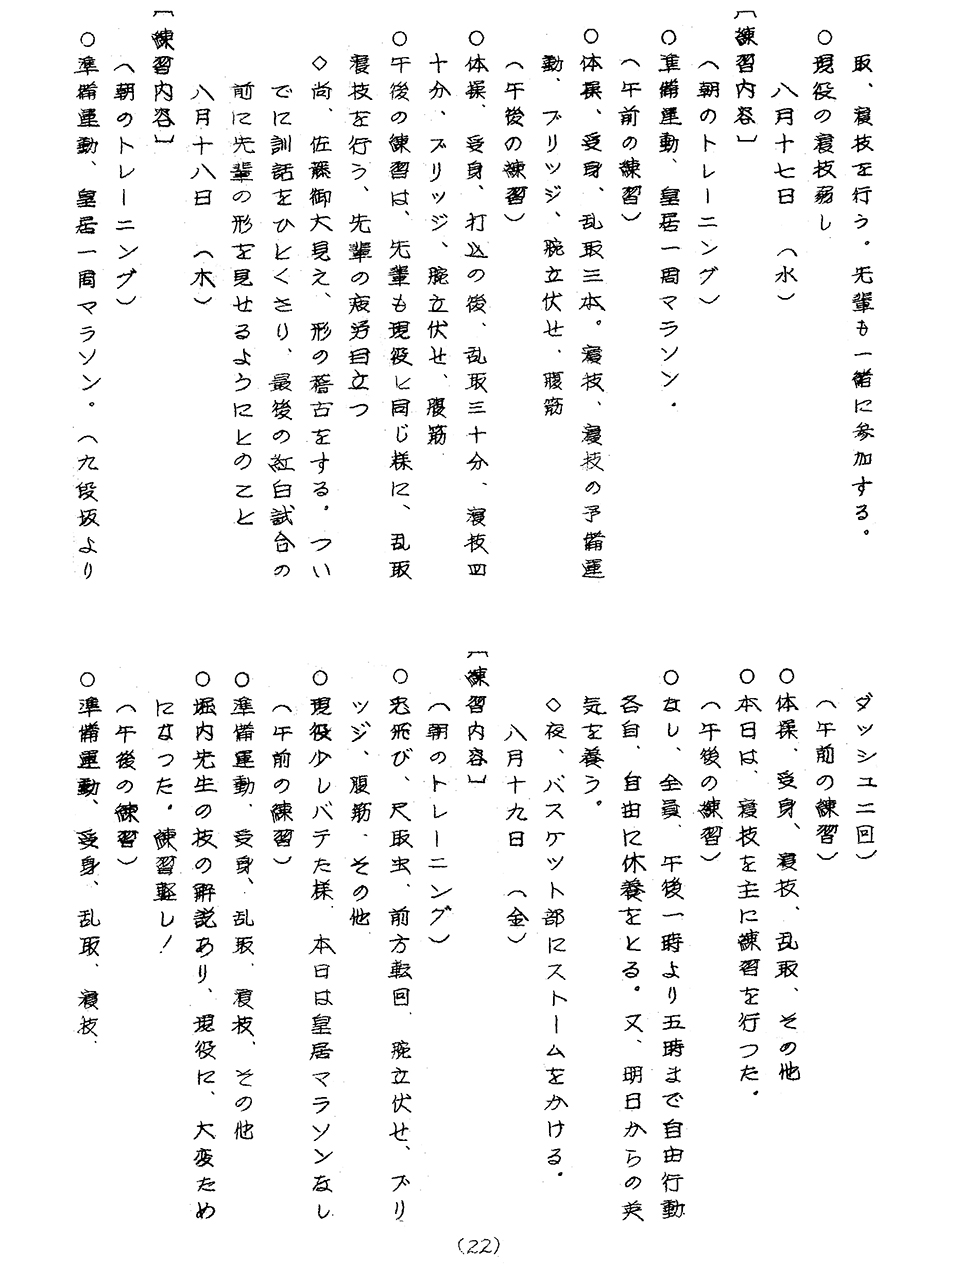 取、寝技を行う。先輩も一緒に参加する。
○現役の寝技弱し
八月十七日　（水）
〔練習内容〕
（朝のトレーニング）
○準備運動、皇居一周マラソン．
（午前の練習）
○体操、受身、乱取三本。寝技、寝技の予備運
動、ブリッジ、腕立伏せ、腹筋
（午後の練習）
○体操、受身、打込の後、乱取三十分、寝技四
十分、ブリッジ、腕立伏せ、腹筋
○午後の練習は、先輩も現役と同じ様に、乱取
寝技を行う、先輩の疲労目立つ
◇尚、佐藤御大見え、形の稽古をする。つい
でに訓話をひとくさり、最後の紅白試合の
前に先輩の形を見せるようにとのこと
八月十八日　（木）
〔練習内容〕
（朝のトレーニング）
○準備運動、皇居一周マラソン。（九段坂より
ダッシュ二回）
（午前の練習）
○体操、受身、寝技、乱取、その他
○本日は、寝技を主に練習を行つた．
（午後の練習）
○なし、全員、午後一時より五時まで自由行動
各自、自由に休養をとる。又、明日からの英
気を養う。
◇夜、バスケット部にストームをかける．
八月十九日　（金）
〔練習内容〕
（朝のトレーニング）
○兎飛び、尺取虫、前方転回、腕立伏せ、ブリ
ッジ、腹筋、その他
○現役少しバテた様、本日は皇居マラソンなし
（午前の練習）
○準備運動、受身、乱取、寝技、その他
○堀内先生の技の解説あり、現役に、大変ため
になつた．練習軽し！
（午後の練習）
○準備運動、受身、乱取、寝技、
(22)